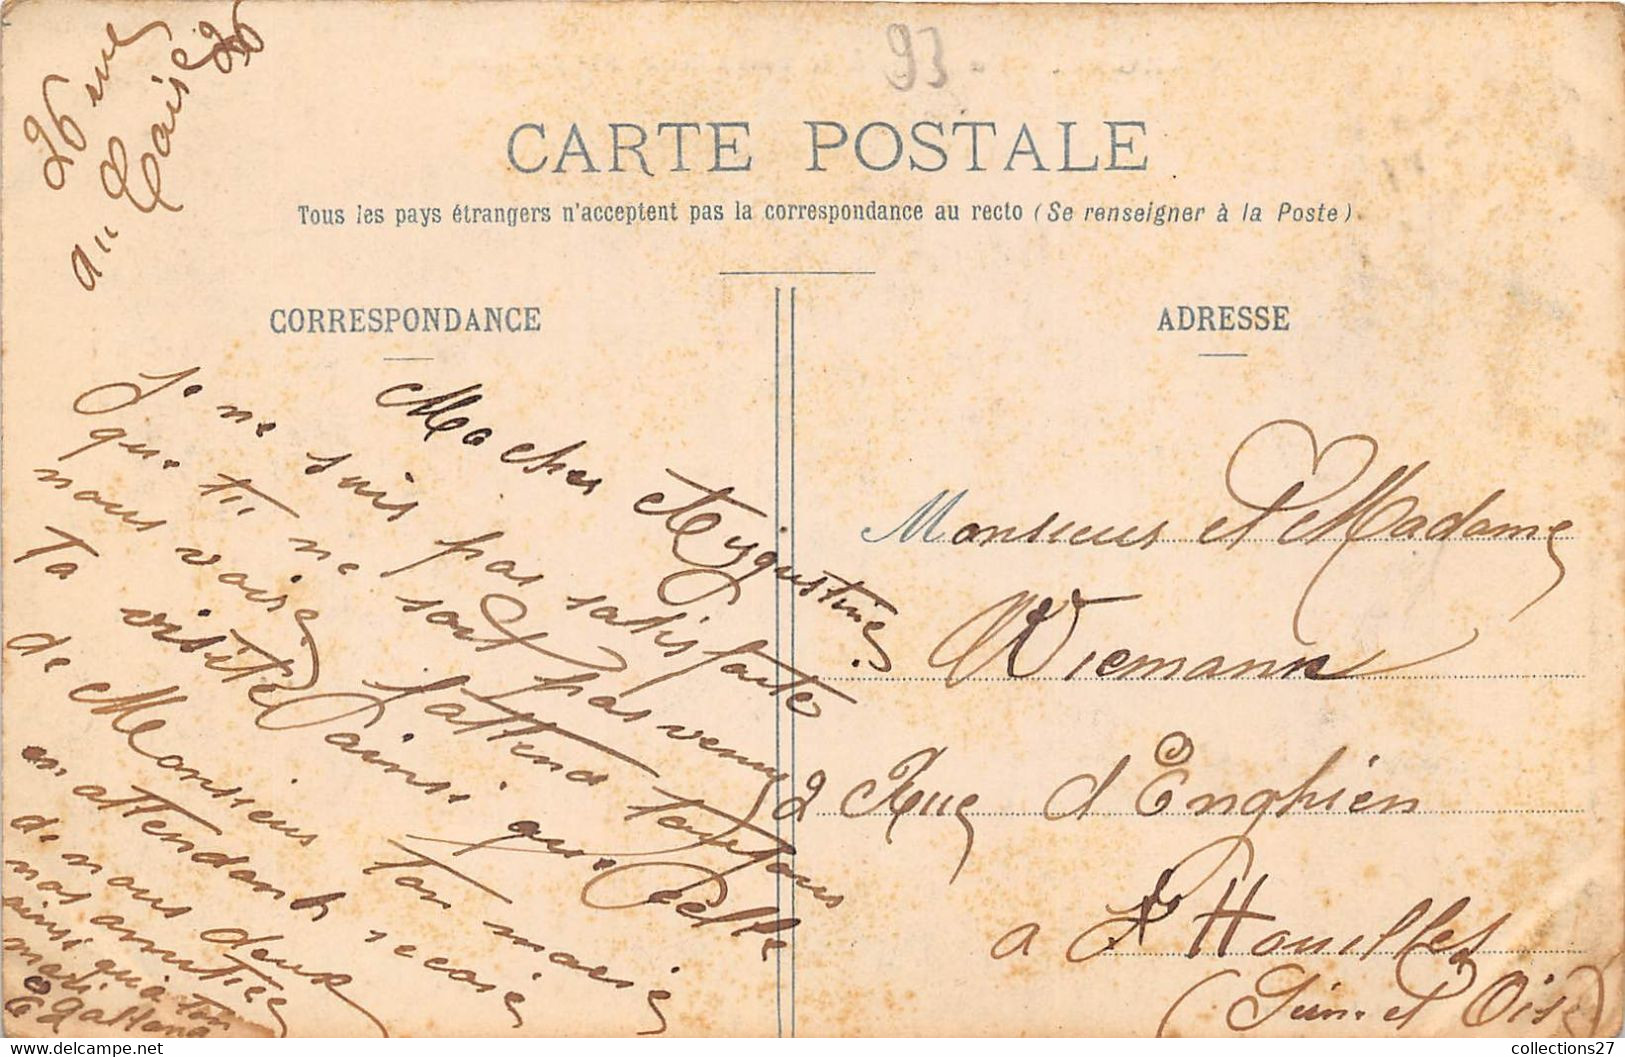 93
26 rue
au
26
CARTE POSTALE
Tous les pays étrangers n'acceptent pas la correspondance au recto (Se renseigner à la Poste)
CORRESPONDANCE
ADRESSE
Ma cher Aygustine
Je ne suis pas satisfaite
que ti ne soit pas venu
nous voire j'attend toujours
Ta visite ainsi que celle
de Monsieur ton marie
en attendant recoie
de nous deux
nos amitiée
ainsi que ton
mari
Monsieur et Madame
Wiemann
2 Rue d'Enghien
a Houilles
(Sein et Oise)
collections27